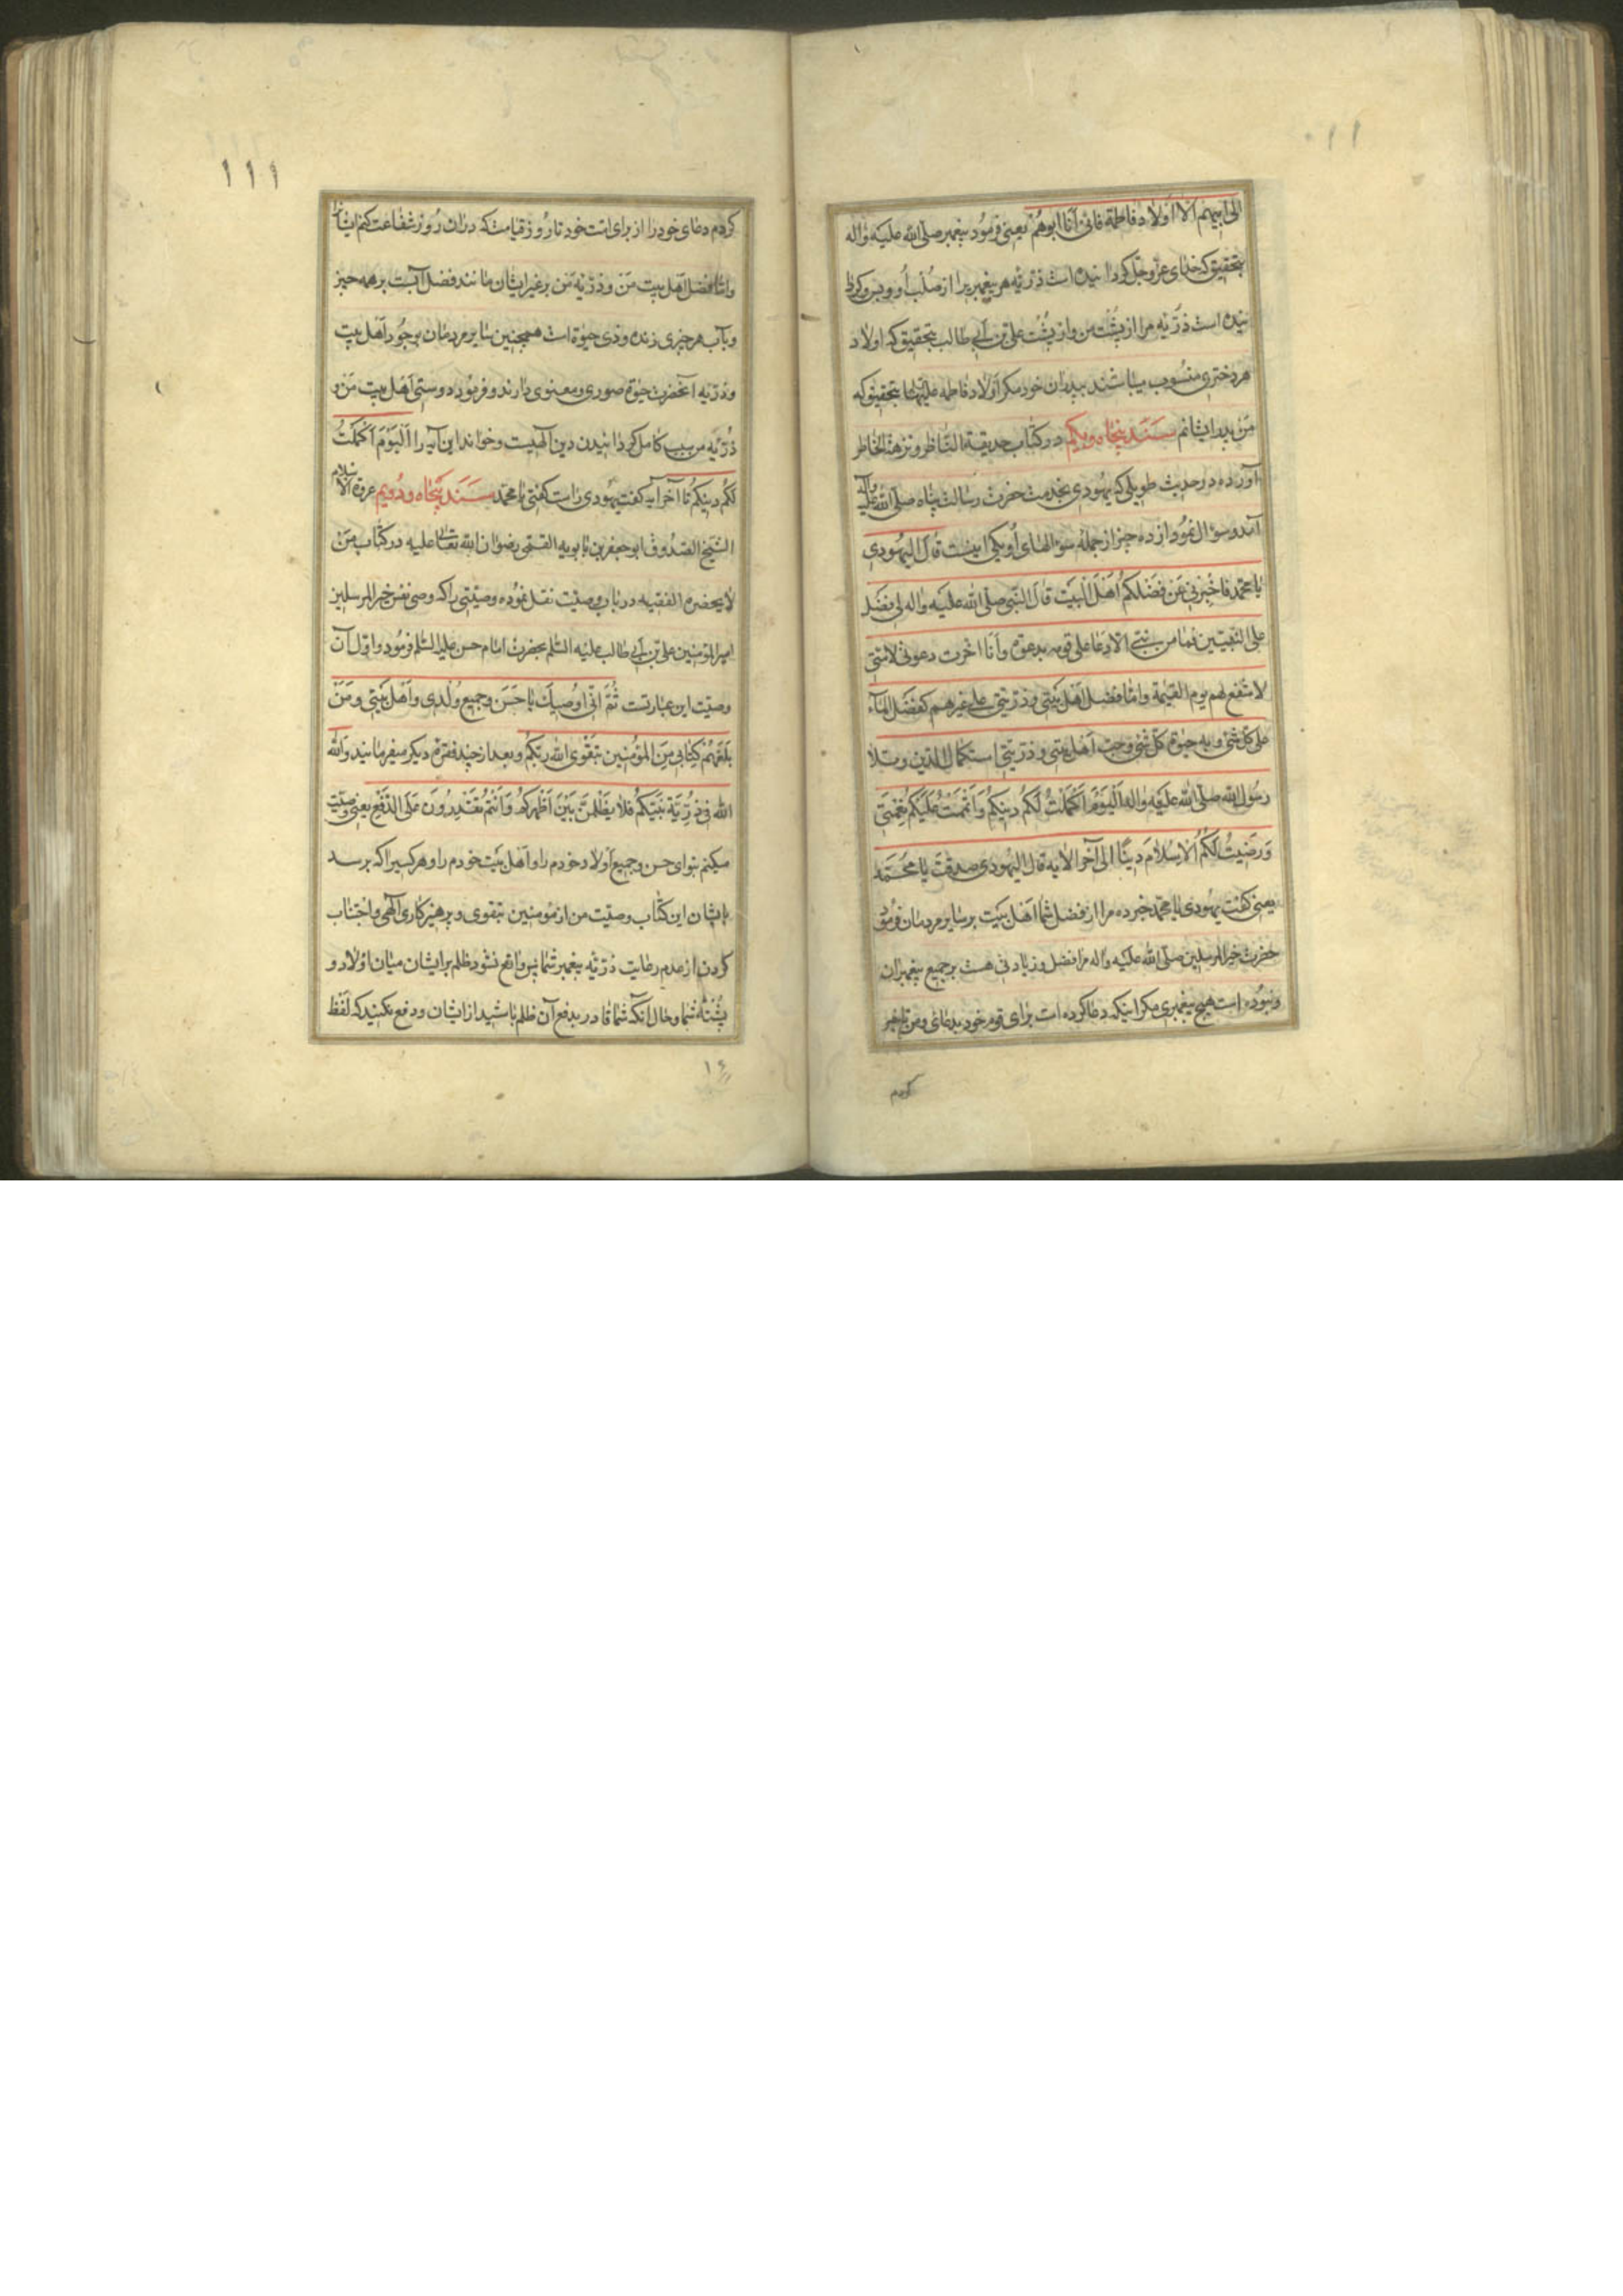 ١١٠
الی ابیهم الا اولاد فاطمة فانی انا ابوهم یعنی فرمود پیغمبر صلی الله علیه واله
بتحقیق که خدای عز وجل کردانیده است ذرّیّه هر پیغمبریرا از صلب او وبس وکردا
نیده است ذرّیّه مرا از پشت من واز پشت علی بن ابی طالب بتحقیق که اولاد
هر دختری منسوب میباشند بپدران خود مکر اولاد فاطمه علیها بتحقیق که
من پدر ایشانم سند پنجاه ویکم در کتاب حدیقة الناظر ونزهة الخاطر
آورده در حدیث طویلی که یهودی بخدمت حضرت رسالت پناه صلی الله علیه واله
آمد وسؤال نمود از ده چیز از جمله سؤالهای او یکی اینست قال الیهودی
یا محمد فاخبرنی عن فضلکم اهل البیت قال النبی صلی الله علیه واله لی فضل
علی النبیین فما من نبی الا دعا علی قومه بدعوة وانا اخرت دعوتی لامتی
لاشفع لهم یوم القیمة واما فضل اهل بیتی وذریتی علی غیرهم کفضل المآء
علی کل شئ وبه حیوة کل شئ وحب اهل بیتی وذریتی استکمال الدین وتلا
رسول الله صلی الله علیه واله الیوم اکملت لکم دینکم واتممت علیکم نعمتی
ورضیت لکم الاسلام دینا الی آخر الآیه قال الیهودی صدقت یا محمد
یعنی کفت یهودی یا محمد خبر ده مرا از فضل شما اهل بیت بر سایر مردمان فرمود
حضرت خیر المرسلین صلی الله علیه واله مرا فضل وزیادتی هست بر جمیع پیغمبران
ونبوده است هیچ پیغمبری مکر اینکه دعا کرده است برای قوم خود بدعائی ومن تاخیر
کردم
١١١
کردم دعای خود را از برای امت خود تا روز قیامت که در ان روز شفاعت کنم ایشانرا
واما فضل اهل بیت من وذرّیّه من بر غیر ایشان مانند فضل آبست بر همه چیز
وبآب هر چیزی زنده وذی حیوة است همچنین سایر مردمان بوجود اهل بیت
وذرّیّه آنحضرت حیوة صوری ومعنوی دارند وفرمود دوستی اهل بیت من و
ذرّیّه من سبب کامل کردانیدن دین الهیست وخواند این آیه را الیوم اکملت
لکم دینکم تا آخر آیه کفت یهودی راست کفتی یا محمد سند پنجاه ودویم عروة الاسلام
الشیخ الصدوق ابو جعفر بن بابویه القمی رضوان الله تعالی علیه در کتاب من
لا یحضره الفقیه در باب وصیت نقل نموده وصیّتی را که وصی نفس خیر المرسلین
امیر المؤمنین علی بن ابی طالب علیه السلم بحضرت امام حسن علیه السلم فرمود واول آن
وصیت این عبارتست ثم انی اوصیک یا حسن وجمیع ولدی واهل بیتی ومن
بلغهم کتابی من المؤمنین بتقوی الله ربکم وبعد از چند فقره دیکر میفرمایند والله
الله فی ذریة نبیکم فلا یظلمن بین اظهرکم وانتم تقتدرون علی الدفع یعنی وصیت
میکنم تو ای حسن وجمیع اولاد خودم را واهل بیت خودم را وهر کسیرا که برسد
بایشان این کتاب وصیّت من از مؤمنین بتقوی وپرهیزکاری الهی واجتناب
کردن از عدم رعایت ذرّیّه پیغمبر شما پس واقع نشود ظلم بر ایشان میان اولاد و
پشته شما وحال آنکه شما قادر بدفع آن ظلم باشید از ایشان ودفع نکنید که لفظ
١٤